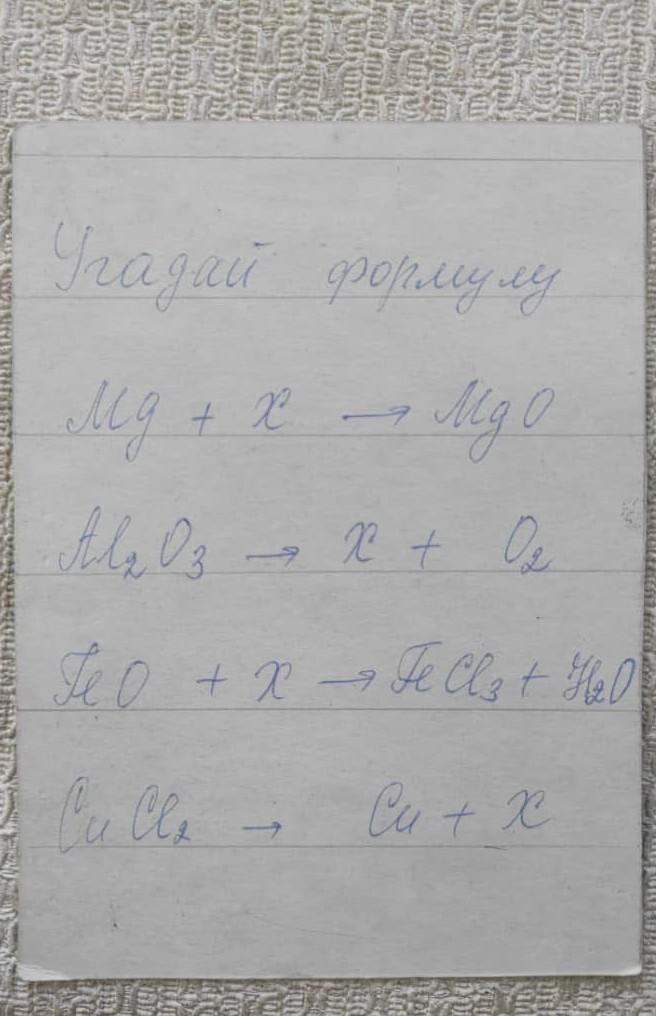 Угадай формулу
Mg + X → MgO
Al₂O₃ → X + O₂
FeO + X → FeCl₃ + H₂O
CuCl₂ → Cu + X